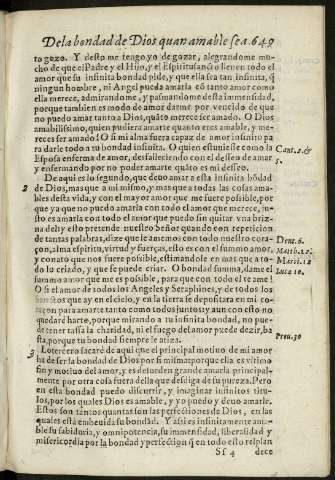 De la bondad de Dios quan amable sea. 649
to gozo. Y desto me tengo yo de gozar, alegrandome mu-
cho de que el Padre, y el Hijo, y el Espiritusancto se amen todo el
amor que su infinita bondad pide, y que ella sea tan infinita, q̃
ningun hombre, ni Angel pueda amarla cõ tanto amor como
ella merece, admirandome, y pasmandome desta immensidad,
porque tambien es modo de amor darme por vencido de que
no puedo amar tanto a Dios, quãto merece ser amado. O Dios
amabilissimo, quien pudiera amarte quanto eres amable, y me-
reces ser amado! O si mi alma fuera capaz de amor infinito pa
ra darle todo a tu bondad infinita. O quien estuuiesse como la
Esposa enferma de amor, desfalleciendo con el desseo de amar
y enfermando por no poder amarte quãto es mi desseo.
Cant. 2. &
5.
De aqui es lo segundo, que deuo amar a esta infinita bõdad
2
de Dios, mas que a mi mismo, y mas que a todas las cosas ama-
bles desta vida, y con el mayor amor que me fuere possible, por
que ya que no puedo amarla con todo el amor que merece, jus-
to es amarla con todo el amor que puedo sin quitar vna briz
na del: y esto pretende nuestro Señor quando con repeticion
de tantas palabras, dize que le amemos con todo nuestro cora-
çon, alma, espiritu, virtud y fuerças, esto es con el sumo amor,
y conato que nos fuere possible, estimandole en mas que a to-
do lo criado, y que se puede criar. O bondad summa, dame el
summo amor que me es possible, para que con todo el te ame!
O si el amor de todos los Angeles y Seraphines, y de todos los
sanctos que ay en el cielo, y en la tierra se depositara en mi co-
raçon para amarte tanto como todos juntos; y aun con esto no
quedaré harto, porque mirando a tu infinita bondad, no pue-
de tener tassa la charidad, ni el fuego del amor puede dezir, ba
sta, porque tu bondad siempre le atiza.
Deut. 6.
Luca 10.
Prou. 30
3
Lo tercero sacaré de aqui que el principal motiuo de mi amor
ha de ser la bondad de Dios por si misma; porque ella es vltimo
fin y motiuo del amor, y es desorden grande amarla principal-
mente por otra cosa fuera della que desdiga de su pureza. Pero
en esta bondad puedo discurrir, y imaginar infinitos titu-
los, por los quales Dios es amable, y yo puedo y deuo amarle.
Estos son tantos quantas son las perfectiones de Dios, en las
quales està embeuida su bondad. Y assi es infinitamente ama-
ble su sabiduria, y omnipotencia, su immensidad, liberalidad y
misericordia por la bondad y perfection q̃ en todo esto resplan
Sf 4 dece